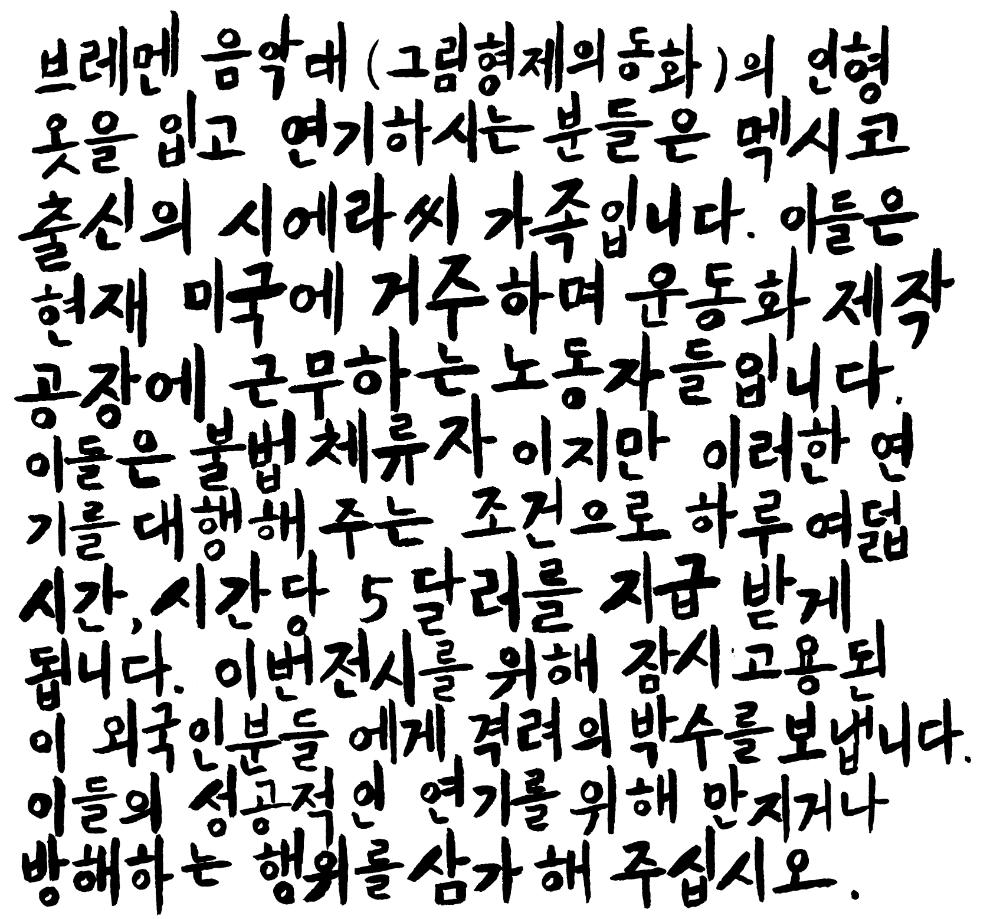 브레멘 음악대 (그림형제의 동화)의 인형
옷을 입고 연기하시는 분들은 멕시코
출신의 시에라씨 가족입니다. 이들은
현재 미국에 거주하며 운동화 제작
공장에 근무하는 노동자들입니다.
이들은 불법체류자 이지만 이러한 연
기를 대행해 주는 조건으로 하루 여덟
시간, 시간당 5달러를 지급 받게
됩니다. 이번전시를 위해 잠시 고용된
이 외국인분들 에게 격려의 박수를 보냅니다.
이들의 성공적인 연기를 위해 만지거나
방해하는 행위를 삼가 해 주십시오.